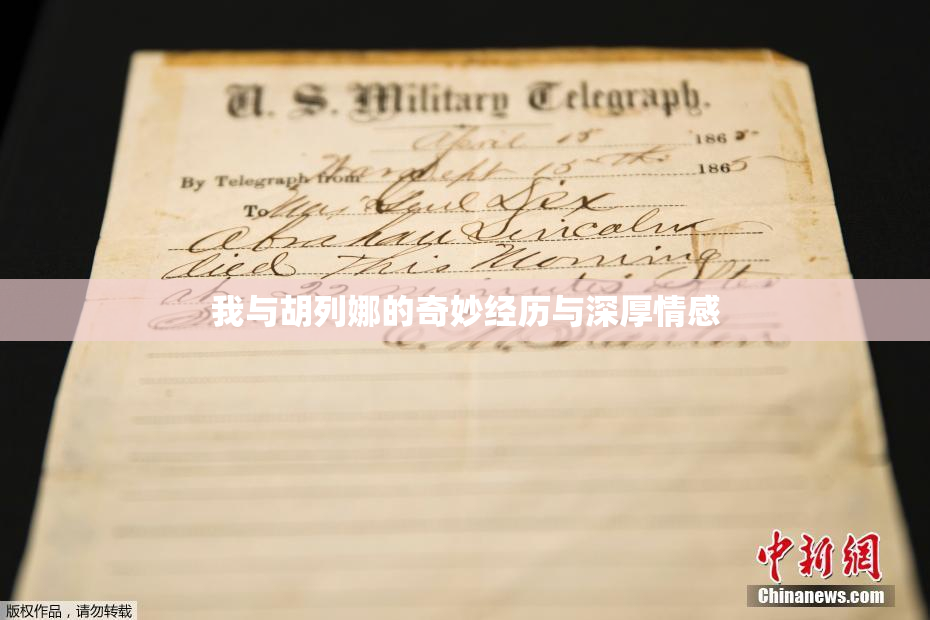 U. S. Military Telegraph.
April 15 1865
By Telegraph from War Dept 15th 1865
To Maj Genl Dix
Abraham Lincoln
died This Morning
at 22 minutes after
我与胡列娜的奇妙经历与深厚情感
Stanton
中新网
Chinanews.com
版权作品，请勿转载